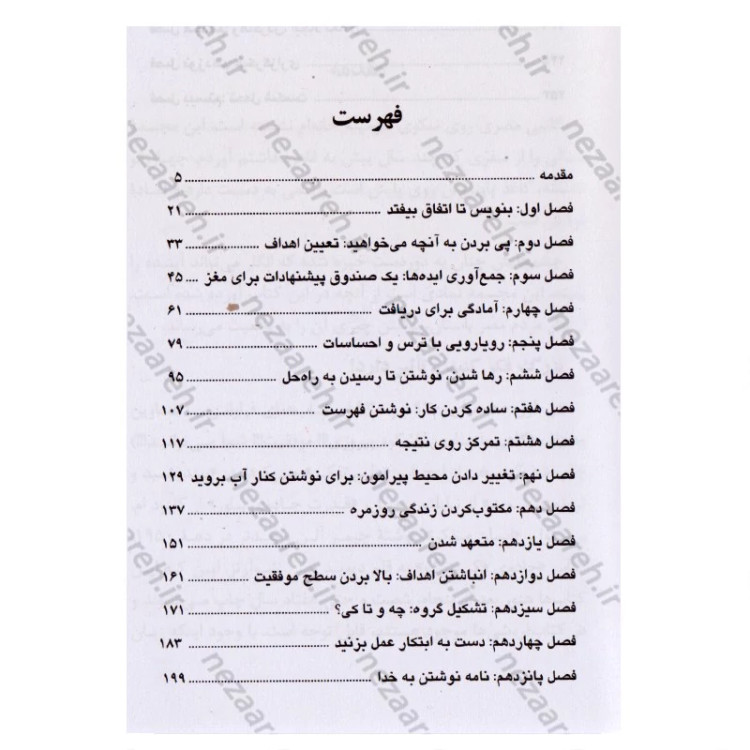 فهرست
مقدمه ........ ۵
فصل اول: بنویس تا اتفاق بیفتد ........ ۲۱
فصل دوم: پی بردن به آنچه می‌خواهید: تعیین اهداف ........ ۳۳
فصل سوم: جمع‌آوری ایده‌ها: یک صندوق پیشنهادات برای مغز .... ۴۵
فصل چهارم: آمادگی برای دریافت ........ ۶۱
فصل پنجم: رویارویی با ترس و احساسات ........ ۷۹
فصل ششم: رها شدن، نوشتن تا رسیدن به راه‌حل ........ ۹۵
فصل هفتم: ساده کردن کار: نوشتن فهرست ........ ۱۰۷
فصل هشتم: تمرکز روی نتیجه ........ ۱۱۷
فصل نهم: تغییر دادن محیط پیرامون: برای نوشتن کنار آب بروید ۱۲۹
فصل دهم: مکتوب‌کردن زندگی روزمره ........ ۱۳۷
فصل یازدهم: متعهد شدن ........ ۱۵۱
فصل دوازدهم: انباشتن اهداف: بالا بردن سطح موفقیت ........ ۱۶۱
فصل سیزدهم: تشکیل گروه: چه و تا کی؟ ........ ۱۷۱
فصل چهاردهم: دست به ابتکار عمل بزنید ........ ۱۸۳
فصل پانزدهم: نامه نوشتن به خدا ........ ۱۹۹
nezaareh.ir